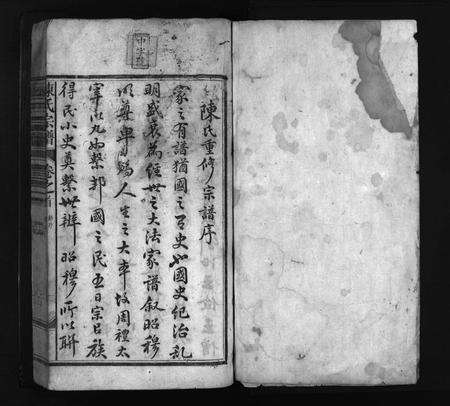 陳氏重修宗譜序
家之有譜猶國之有史也國史紀治亂
明盛衰為經世之大法家譜叙昭穆
明尊卑為人生之大本故周禮太
宰以九兩繫邦國之民五曰宗以族
得民小史奠繫世辨昭穆所以聯
陳氏宗譜
卷之首